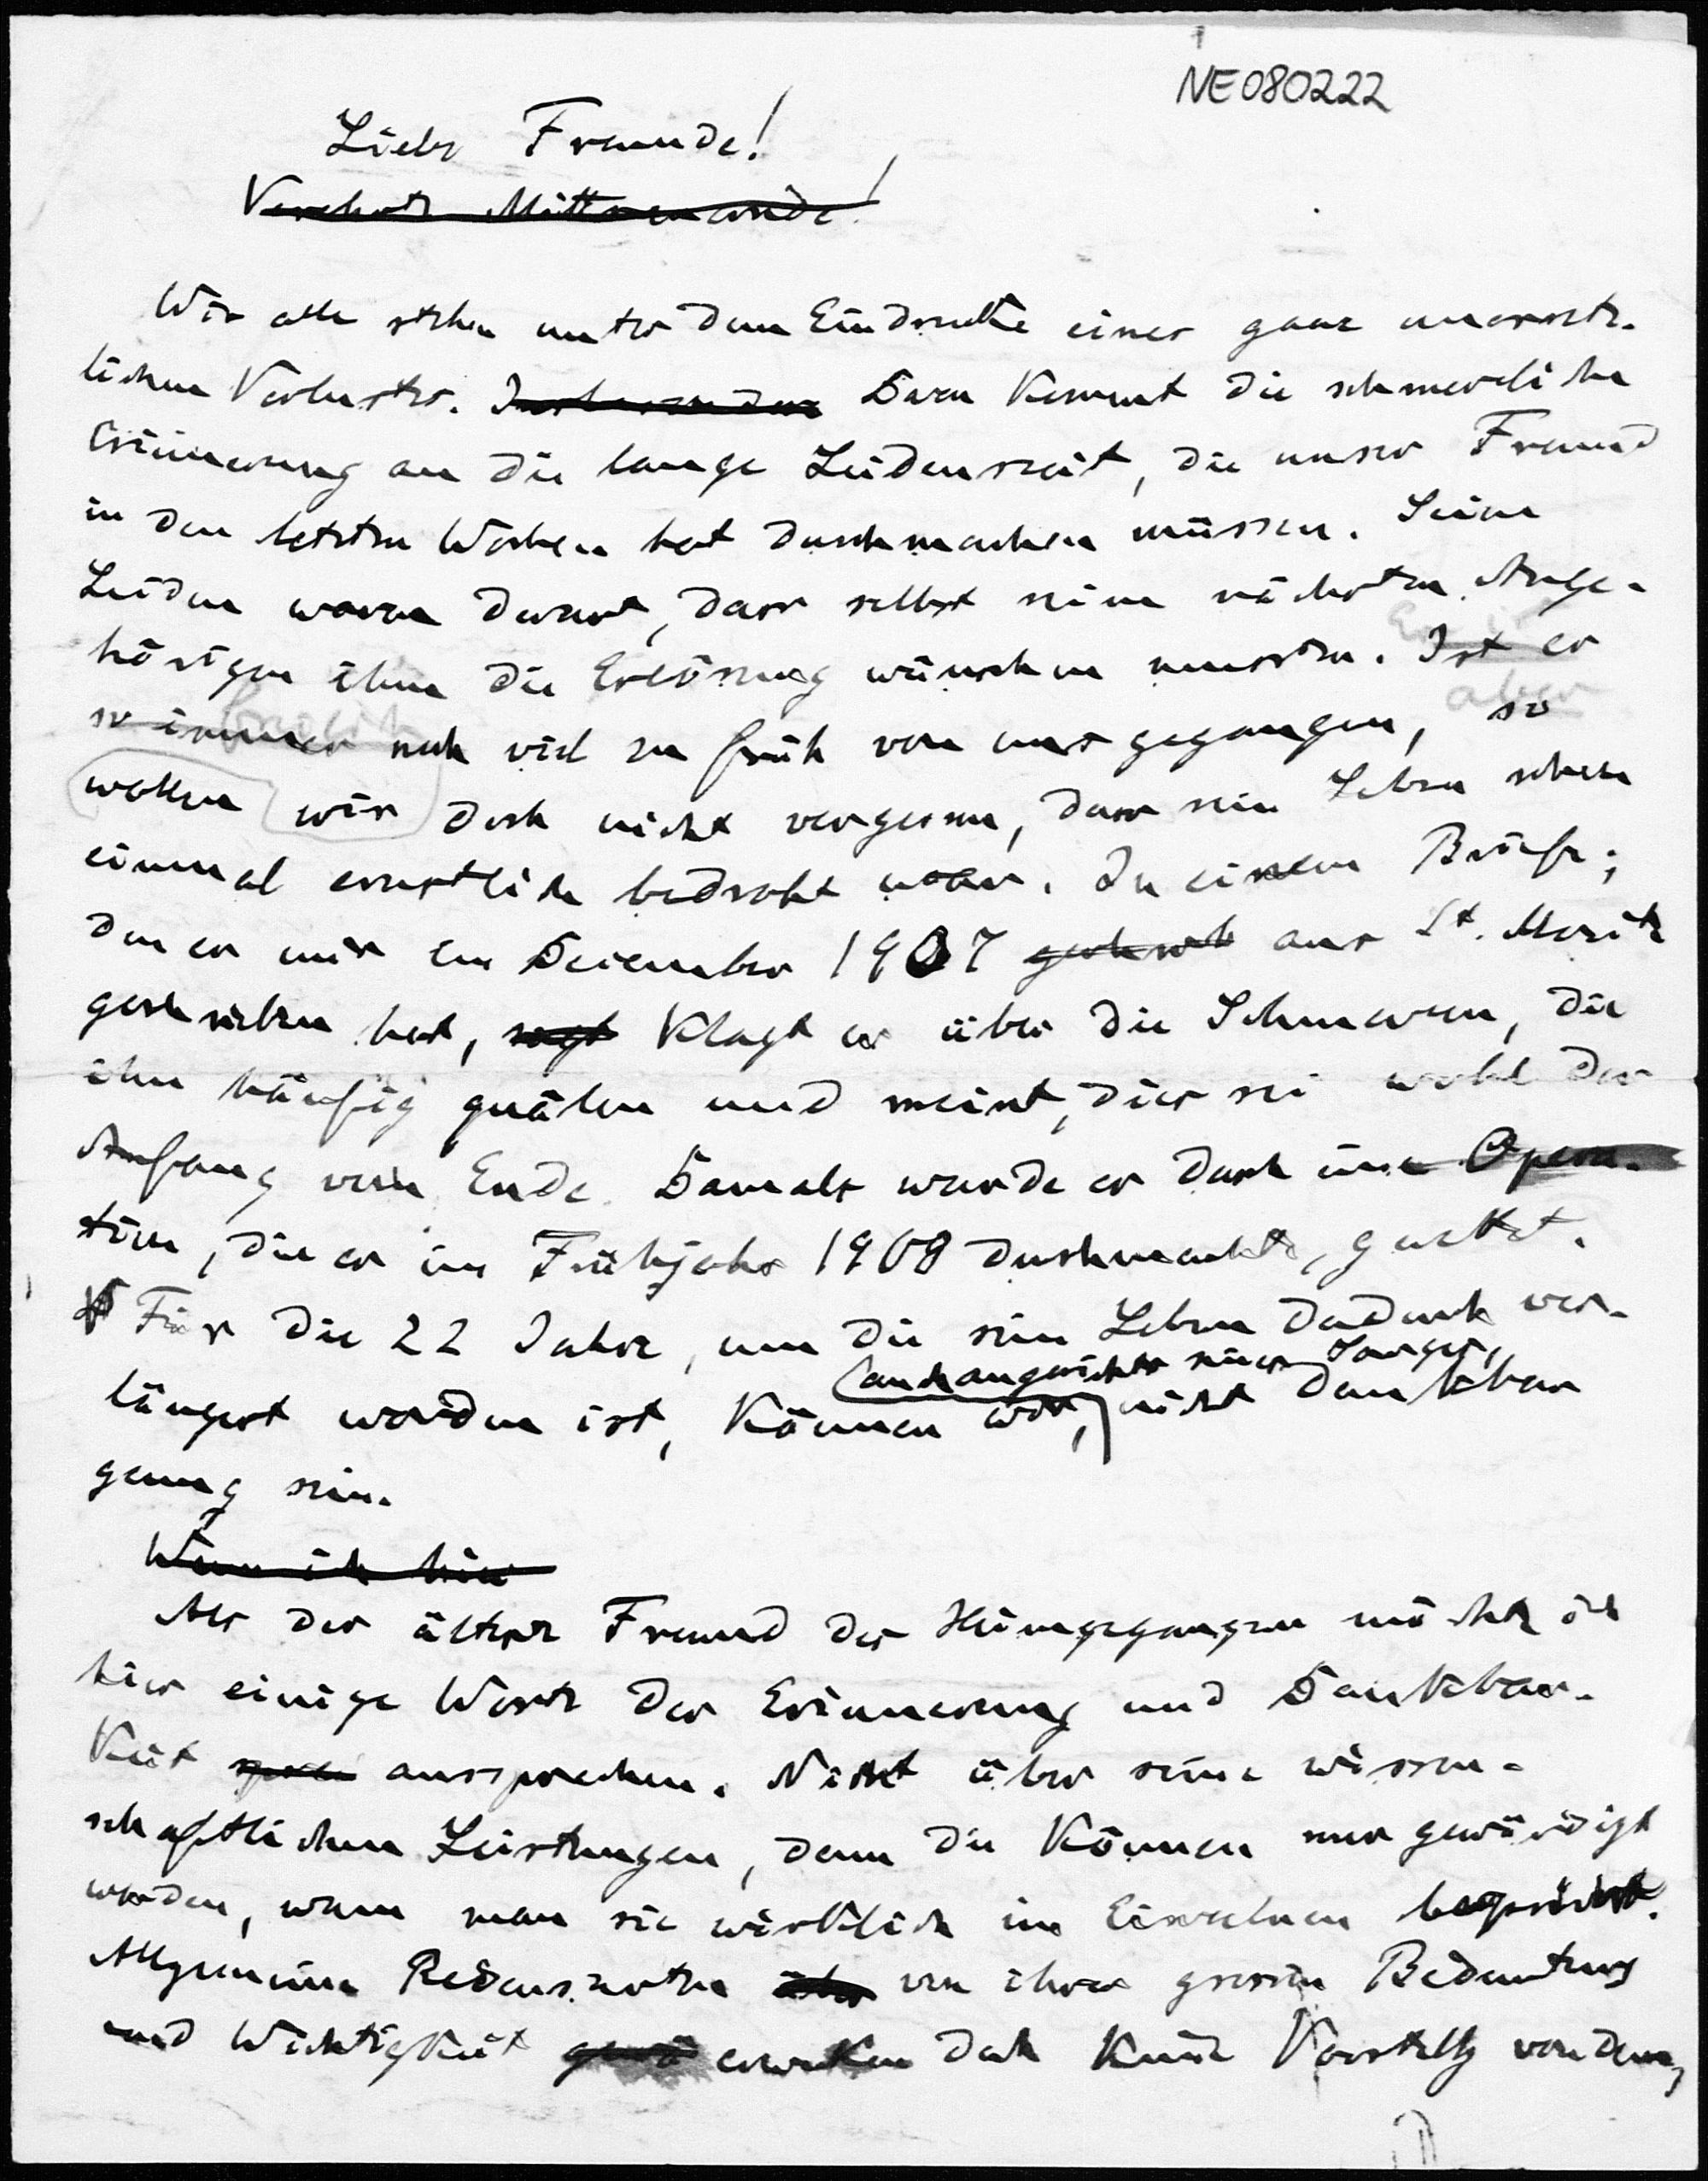 NE080222
Liebe Freunde!
Verehrte
Wir alle stehen unter dem Eindrucke eines ganz unersetz-
lichen Verlustes. Insbesondere Dazu kommt die schmerzliche
Erinnerung an die lange Leidenszeit, die unser Freund
in den letzten Wochen hat durchmachen müssen. Seine
Leiden waren derart, dass selbst seine nächsten Ange-
hörigen ihm die Erlösung wünschen mussten. Ist er
so immer freilich noch viel zu früh von uns gegangen, aber so
wollen wir doch nicht vergessen, dass sein Leben schon
einmal ernstlich bedroht war. In einem Briefe,
den er mir im Dezember 1907 aus St. Moritz
geschrieben hat, sagt klagt er über die Schmerzen, die
ihn häufig quälen und meint, dies sei wohl der
Anfang vom Ende. Damals wurde er durch eine Opera-
tion, die er im Frühjahr 1908 durchmachte, gerettet.
Für die 22 Jahre, um die sein Leben dadurch ver-
längert worden ist, können wir, auch angesichts seines nicht dankbar
genug sein.
Wenn ich hier
Als der älteste Freund des Heimgegangenen möchte ich
hier einige Worte der Erinnerung und Dankbar-
keit aussprechen. Nicht über seine wissen-
schaftlichen Leistungen, denn die können nur gewürdigt
werden, wenn man sie wirklich im Einzelnen bespricht.
Allgemeine Redensarten über von ihrer grossen Bedeutung
und Wichtigkeit erwecken doch keine Vorstellg von dem,